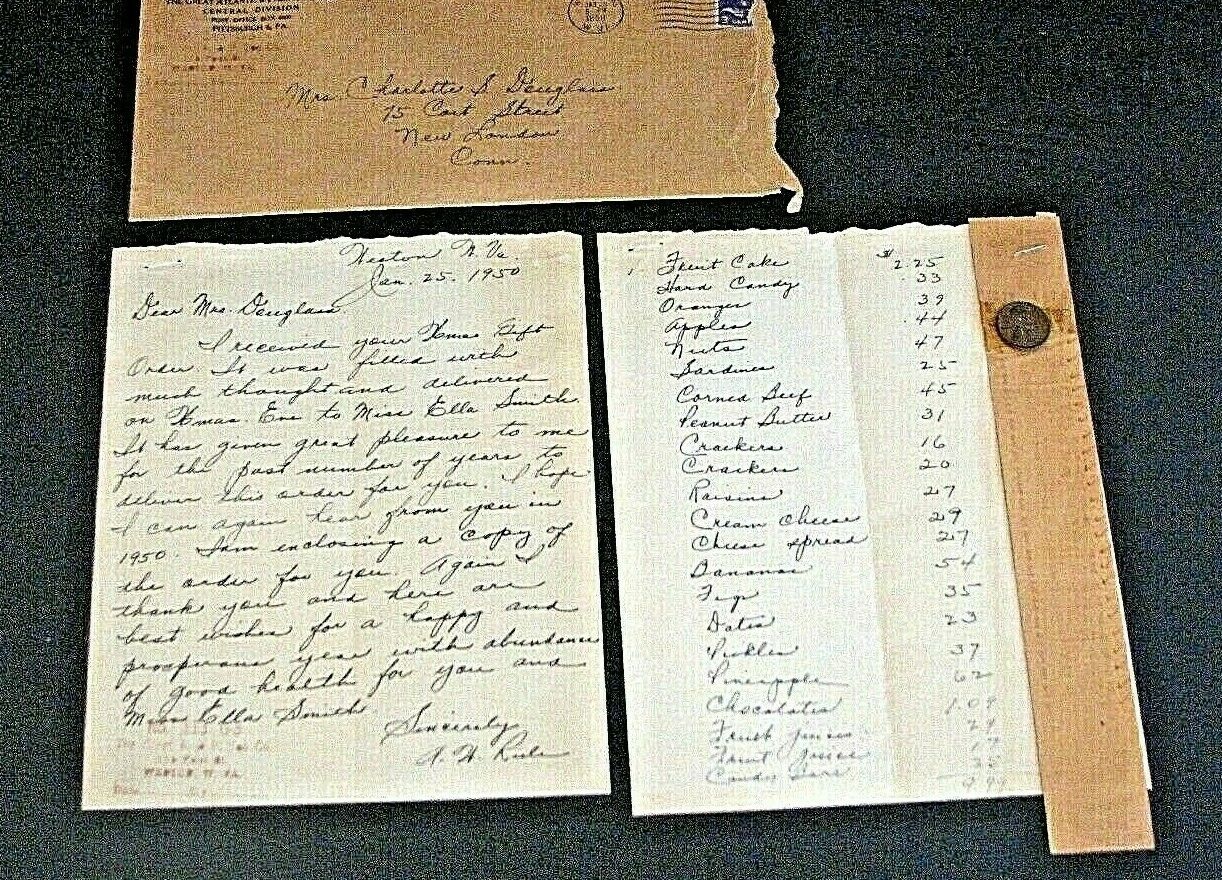 THE GREAT ATLANTIC &
CENTRAL DIVISION
POST OFFICE BOX
PITTSBURGH & PA.
Mrs. Charlotte S. Douglass
75 Cort Street
New London
Conn.
Weston W. Va.
Jan. 25. 1950
Dear Mrs. Douglass,
I received your Xmas Gift
Order. It was filled with
much thought and delivered
on Xmas. Eve to Miss Ella Smith.
It has given great pleasure to me
for the past number of years to
deliver this order for you. I hope
I can again hear from you in
1950. I am enclosing a copy of
the order for you. Again I
thank you and here are
best wishes for a happy and
prosperous year with abundance
of good health for you and
Miss Ella Smith
Sincerely
WESTON W. VA.
1 Fruit Cake $2.25
Hard Candy .33
Oranges 39
Apples .44
Nuts 47
Sardines 25
Corned Beef 45
Peanut Butter 31
Crackers 16
Crackers 20
Raisins 27
Cream Cheese 29
Cheese Spread 27
Bananas 54
Figs 35
Dates 23
Pickles 37
Pineapple 62
Chocolates 1.09
Fruit
Fruit
Candy Bars